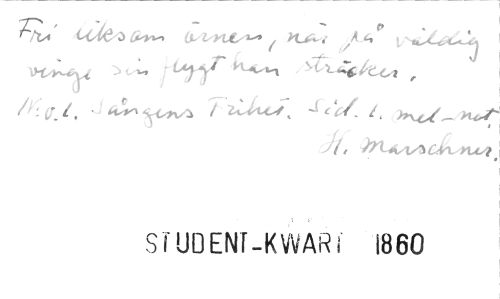 Fri liksom örnen, när på väldig
vinge sin flygt han sträcker.
N:o. 1. Sångens Frihet. Sid. 1. mel-not.
H. Marschner.
STUDENT-KWART 1860